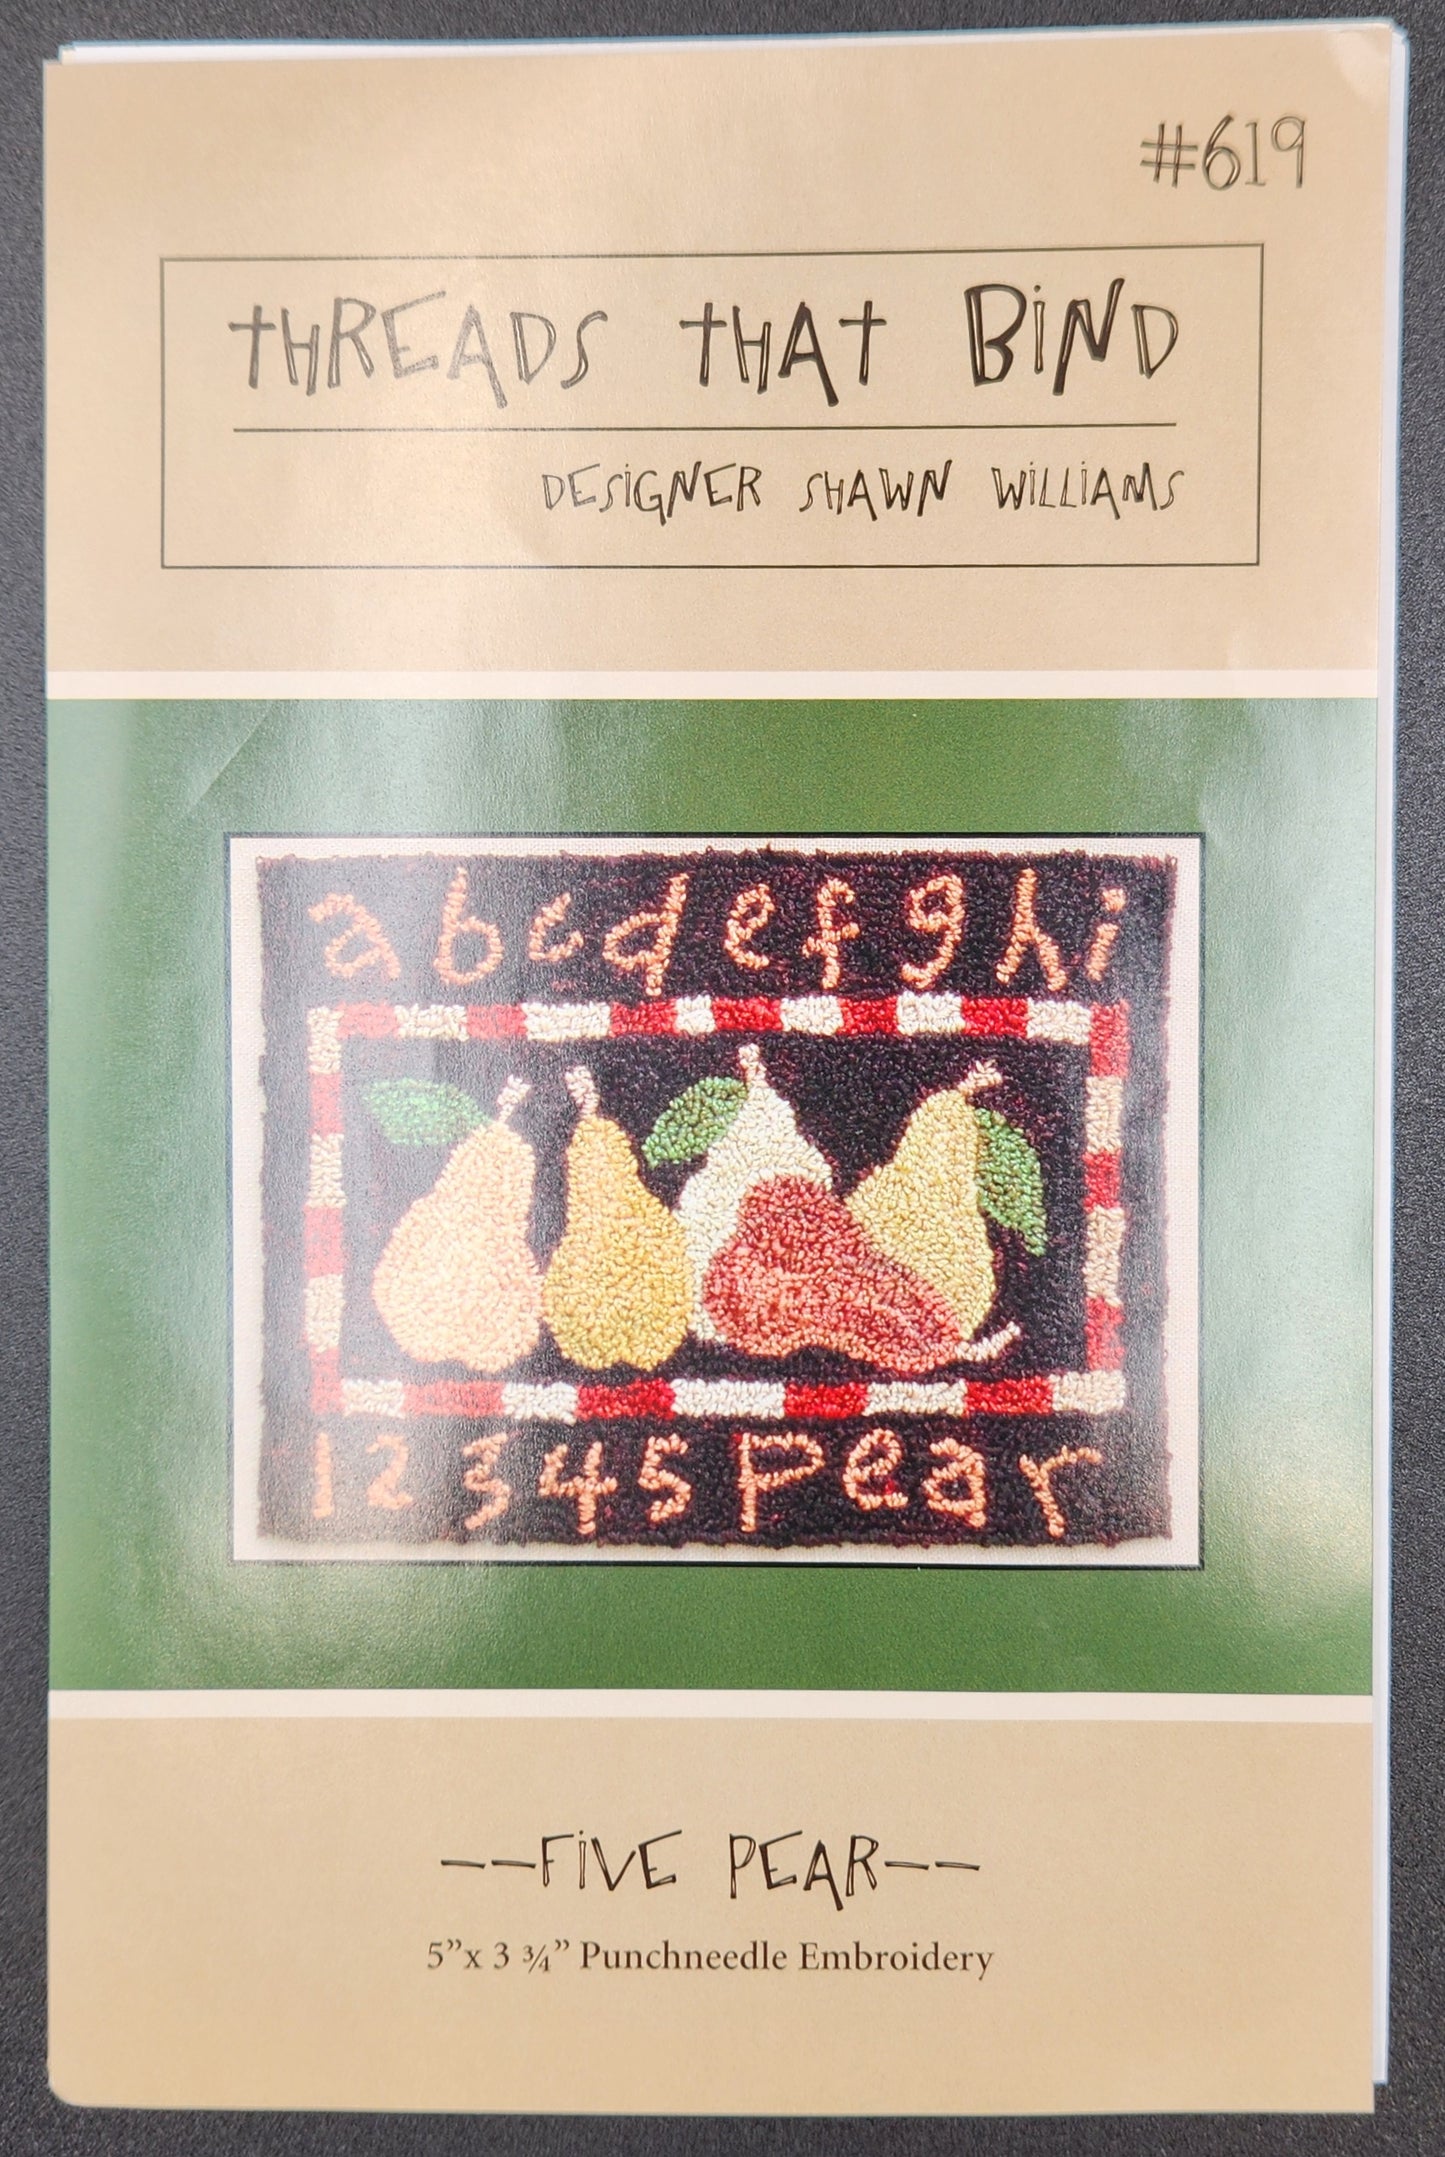 #619
THREADS THAT BiND
DESiGNER SHAWN WiLLiAMS
abcdefghi
12345 Pear
--FiVE PEAR--
5”x 3 ¾” Punchneedle Embroidery